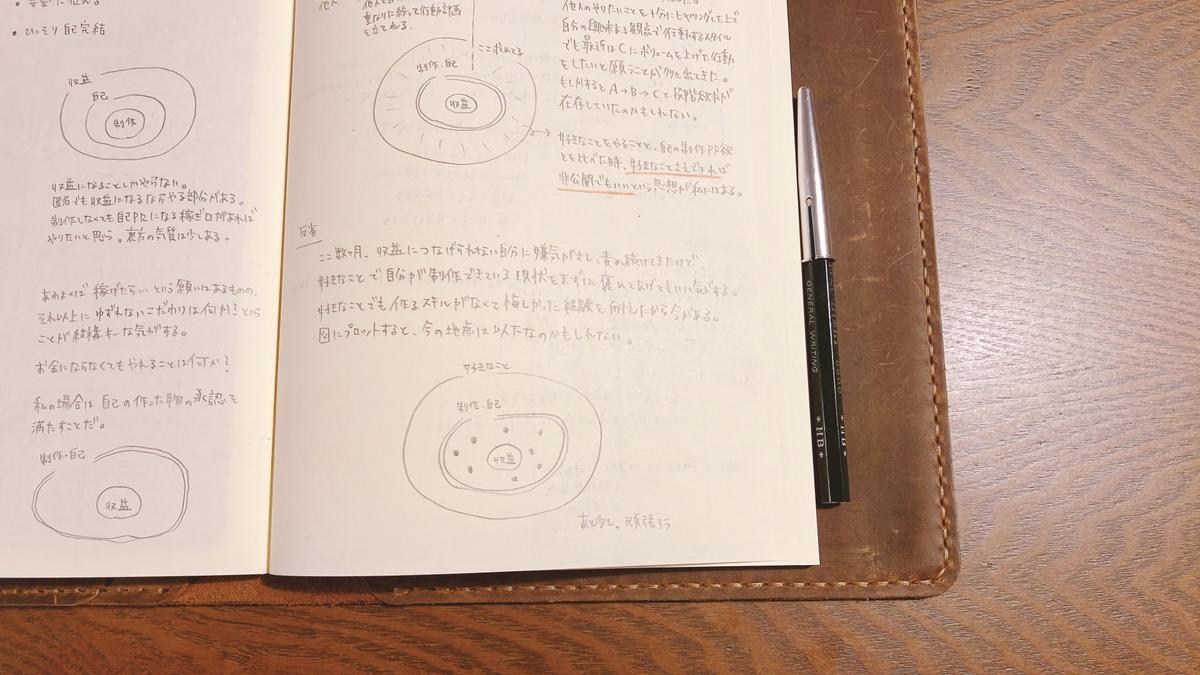 ・安全に伝える
・ひっそり自己完結
収益
自己
制作
収益になることしかやらない。
匿名でも収益になるならやる部分がある。
制作しなくても自己PRになる稼ぎ口があれば
やりたいと思う。裏方の気質は少しある。
あわよくば稼げたら…という願いはあるものの、
それ以上にゆずれないこだわりは何か?という
ことが結構キーな気がする。
お金にならなくてもやれることは何か?
私の場合は自己の作った物の承認を
満たすことだ。
制作・自己
収益
他人
重なりに絞って行動計画
を立てれる。
ここ求めてる
制作・自己
収益
他人のやりたいことを十分にヒヤリングした上で
自分の興味ある観点で行動するスタイル
でも最近はCにボリュームを上げた行動
をしたいと願うことが多々出てきた。
もしかするとA→B→Cと段階欲求が
存在していたのかもしれない。
好きなことをやることと、自己の制作PR欲
とを比べた時、好きなことさえできれば
非公開でもいいという思想が私にはある。
反省
ここ数ヶ月、収益につなげられない自分に嫌気がさし、責め続けてきたけど
好きなことで自分が制作できている現状をまずは褒めてあげてもいい気がする。
好きなことでも作るスキルがなくて悔しかった経験を何度したから今がある。
図にプロットすると、今の地点は以下なのかもしれない。
好きなこと
制作・自己
収益
あと少し。頑張ろう
GENERAL WRITING
* HB *
* HB *